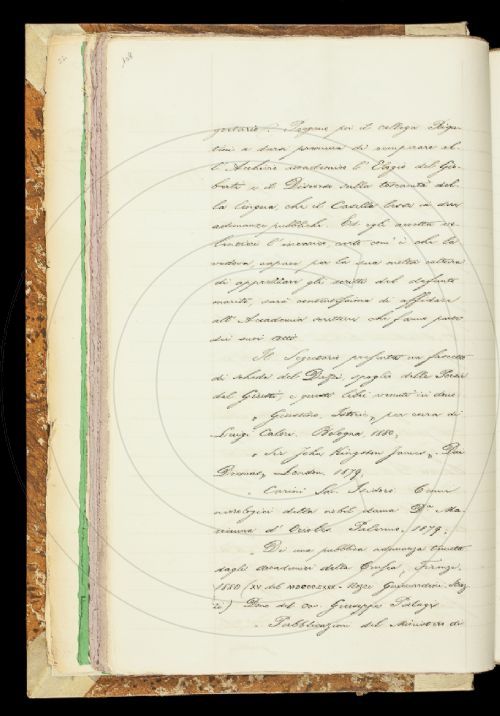 gretario. Propone poi il collega Rigu-
tini a dura premura di ricuperare al-
l'Archivio accademico l'Elogio del Gio-
berti e il Discorso sulla toscanità del-
la lingua, che il Casella lesse in due
adunanze pubbliche. Ed egli accetta vo-
lentieri l'incarico, certo com'è che la
vedova, capace per la sua molta cultura
di apprezzare gli scritti del defunto
marito, sarà contentissima di affidare
all'Accademia scritture che fanno parte
dei suoi atti.
Il Segretario presenta un fascetto
di schede del Dazzi, spoglio delle Poesie
del Giusti, e questi libri venuti in dono:
" Giustino, Istorie, per cura di
Luigi Calori. Bologna, 1880,
" Sir John Kingston James,
London, 1879.
" Carini Sac. Isidoro Cenni
necrologici della nobil donna D.ª Ma-
d' Palermo, 1879;
" De una pubblica adunanza tenuta
dagli accademici della Crusca, Firenze
1880 (XV del Nozze Guicciardini-
) Dono del cav. Giuseppe Palagi.
" Pubblicazioni del Ministero di